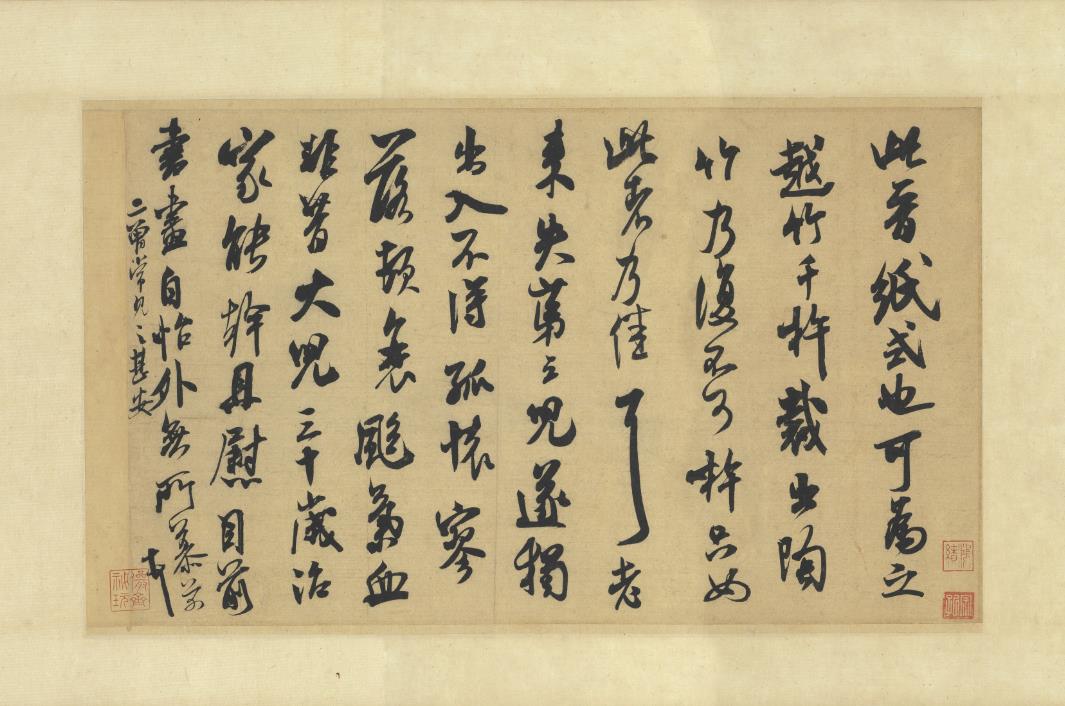 此晉紙式也可為之
越竹千杵裁出陶
竹乃復不可杵只如
此者乃佳耳老
來失第三兒遂獨
出入不得孤懷寥
落頓衰颜氣血
非昔大兒三十歲治
家能幹且慰目前
書畫自怡外無所慕
二曾常見之甚安